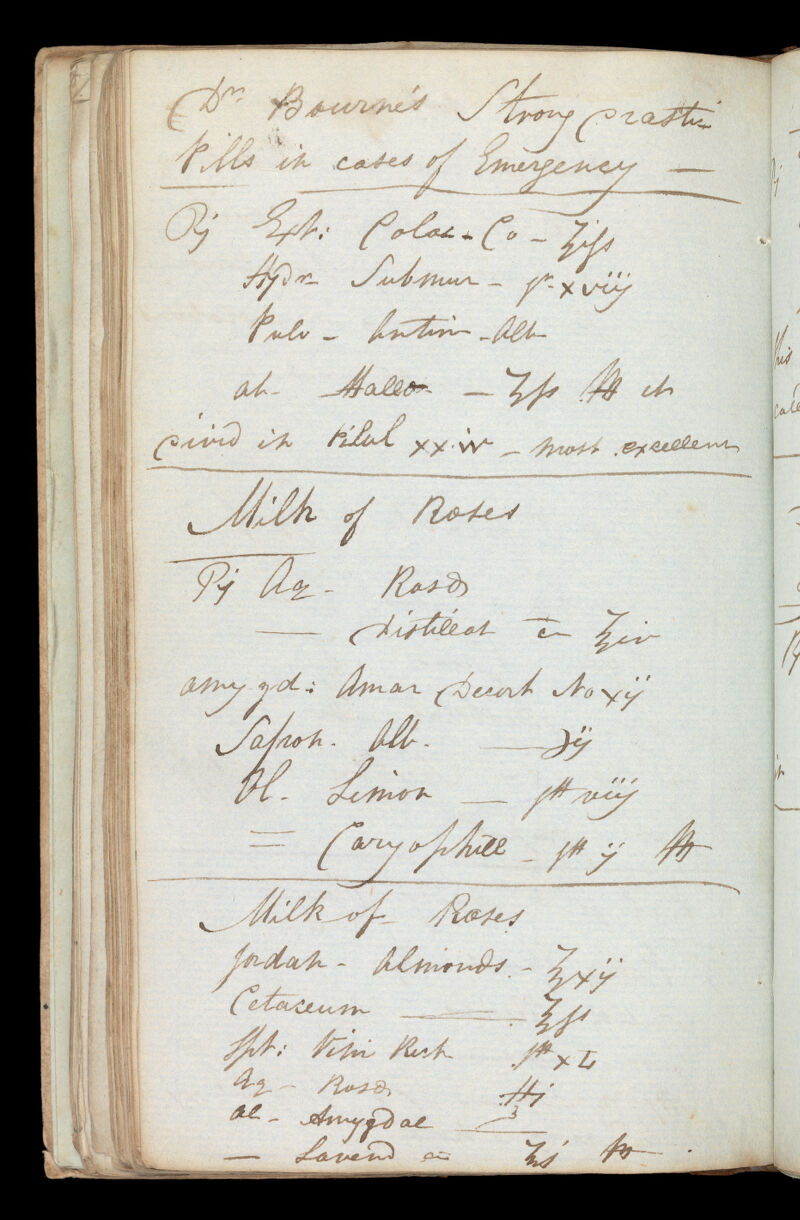 Dr. Bourne's Strong Drastic
Pills in cases of Emergency —
℞ Ext: Coloc - Co - ʒiſs
Hydr Submur - gr xviij
Pulv - Antim - Alb
ʒſs ft
divid in Pilul xxiv - most excellent
Milk of Roses
℞ Aq - Rosæ
— Distillat āā ℥iv
Amygd: Amar Decort No xij
Sapon - Alb - — ʒij
Ol - Limon — gtt viij
= Caryophill - gtt ij ft
Milk of Roses
Jordan - Almonds - ℥xij
Cetaceum — ℥ſs
Spt: Vini Rect gtt xL
Aq - Rosæ
Ol - Amygdal —
— Lavend āā ft